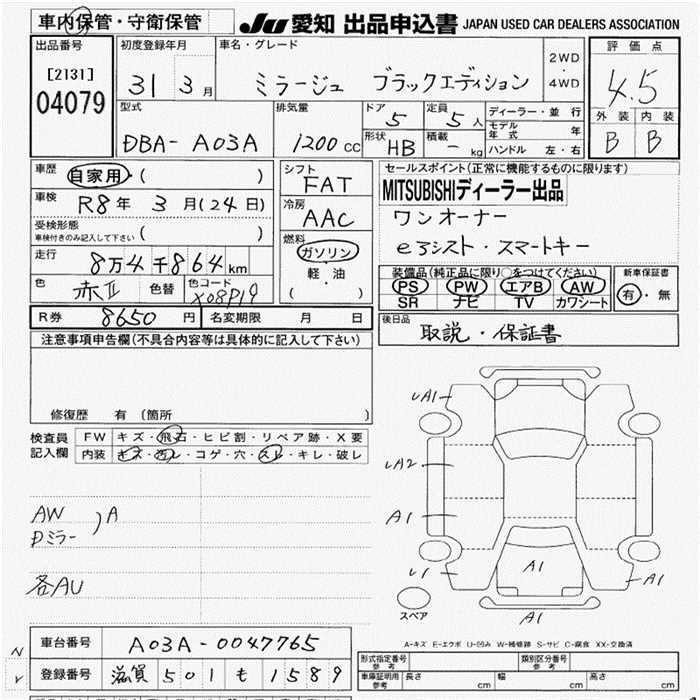 車内保管・守衛保管
JU 愛知 出品申込書 JAPAN USED CAR DEALERS ASSOCIATION
出品番号
[2131]
04079
初度登録年月
31 3 月
車名・グレード
ミラージュ ブラックエディション
2WD
・
4WD
評価点
4.5
外装 内装
B B
型式
DBA- A03A
排気量
1200 CC
ドア
5
定員
5 人
形状
HB
積載
- kg
ディーラー・並行
モデル年式 年
ハンドル 左・右
車歴
自家用・( )
車検
R8年 3 月(24日)
受検形態
車検付きのみ記入して下さい ( )
走行
8万4千864km
色
赤Ⅱ
色替
色コード
X08P19
シフト
FAT
冷房
AAC
燃料
ガソリン
軽・油
( )
セールスポイント(正常に機能するものに限ります)
MITSUBISHIディーラー出品
ワンオーナー
eろシスト・スマートキー
装備品(純正品に限り○をつけてください)
PS PW エアB AW
SR ナビ TV カワシート
新車保証書
有・無
R券 8650 円 名変期限 月 日
後日品
取説・保証書
注意事項申告欄(不具合内容等は具体的に記入して下さい)
修復歴 有(箇所 )
検査員
記入欄
FW キズ・飛石・ヒビ割・リペア跡・X要
内装 キズ・汚レ・コゲ・穴・スレ・キレ・破レ
AW
Dミラー
)A
各AU
UA1
UA2
A1
U1
A1
A1
A1
スペア
A-キズ E-エクボ U-凹み W-補修跡 S-サビ C-腐食 XX-交換済
車台番号 A03A-0047765
登録番号 滋賀 501 も 1589
N
型式指定番号
参考
類別区分番号
参考
車庫証明用
参考
長さ cm 幅 cm 高さ cm